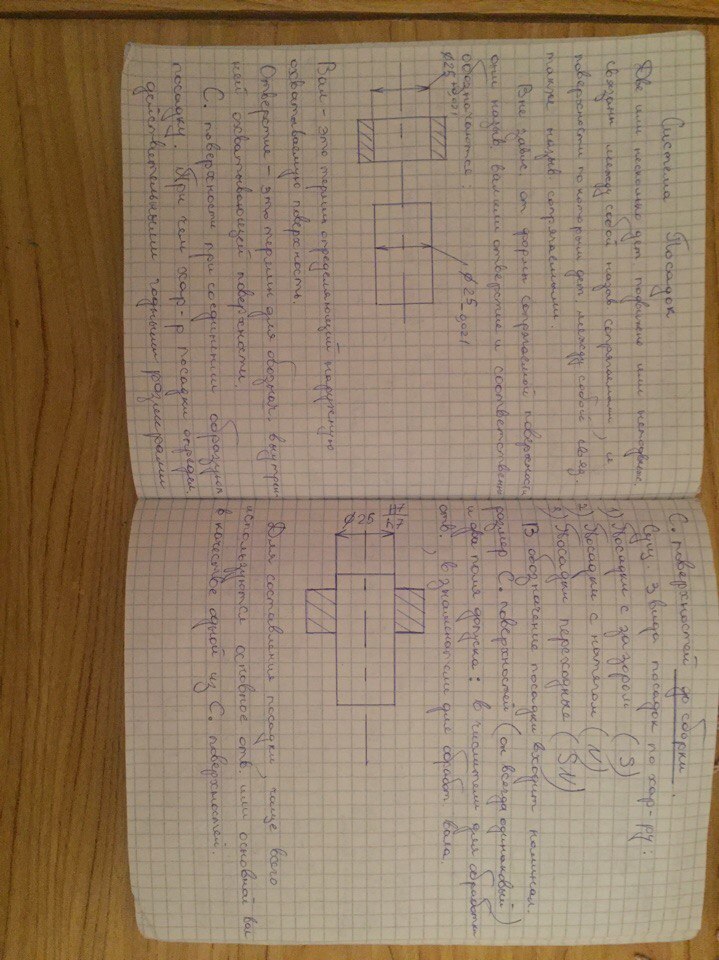 Система Посадок
Две или несколько дет. подвижно или неподвижно
связаны между собой назыв сопрягаемыми, а
поверхности по которым дет. между собой связ.
также назыв сопрягаемыми.
Вне завис. от формы сопрягаемой поверхности
они назыв валами отверстие и соответственно
обозначаются:
Ø25
Ø25 -0,021
Вал - это термин определяющий наружную
охватываемую поверхность
Отверстие - это термин для обознач. внутрен
ней охватывающей поверхности
С. поверхности при соединении образуют
посадку. При чем хар-р посадки определ.
действительными годными размерами
С. поверхностей до сборки.
Сущ. 3 вида посадок по хар-ру:
1) Посадки с зазором (S)
2) Посадки с натягом (N)
3) Посадки переходные (SN)
В обозначение посадки входит номинал.
размер С. поверхностей (он всегда одинаковый)
и два поля допуска: в числителе для обработки
отв., в знаменателе для обработ вала.
Ø25
Для составления посадки, чаще всего
используются основное отв. или основной вал
в качестве одной из С. поверхностей.